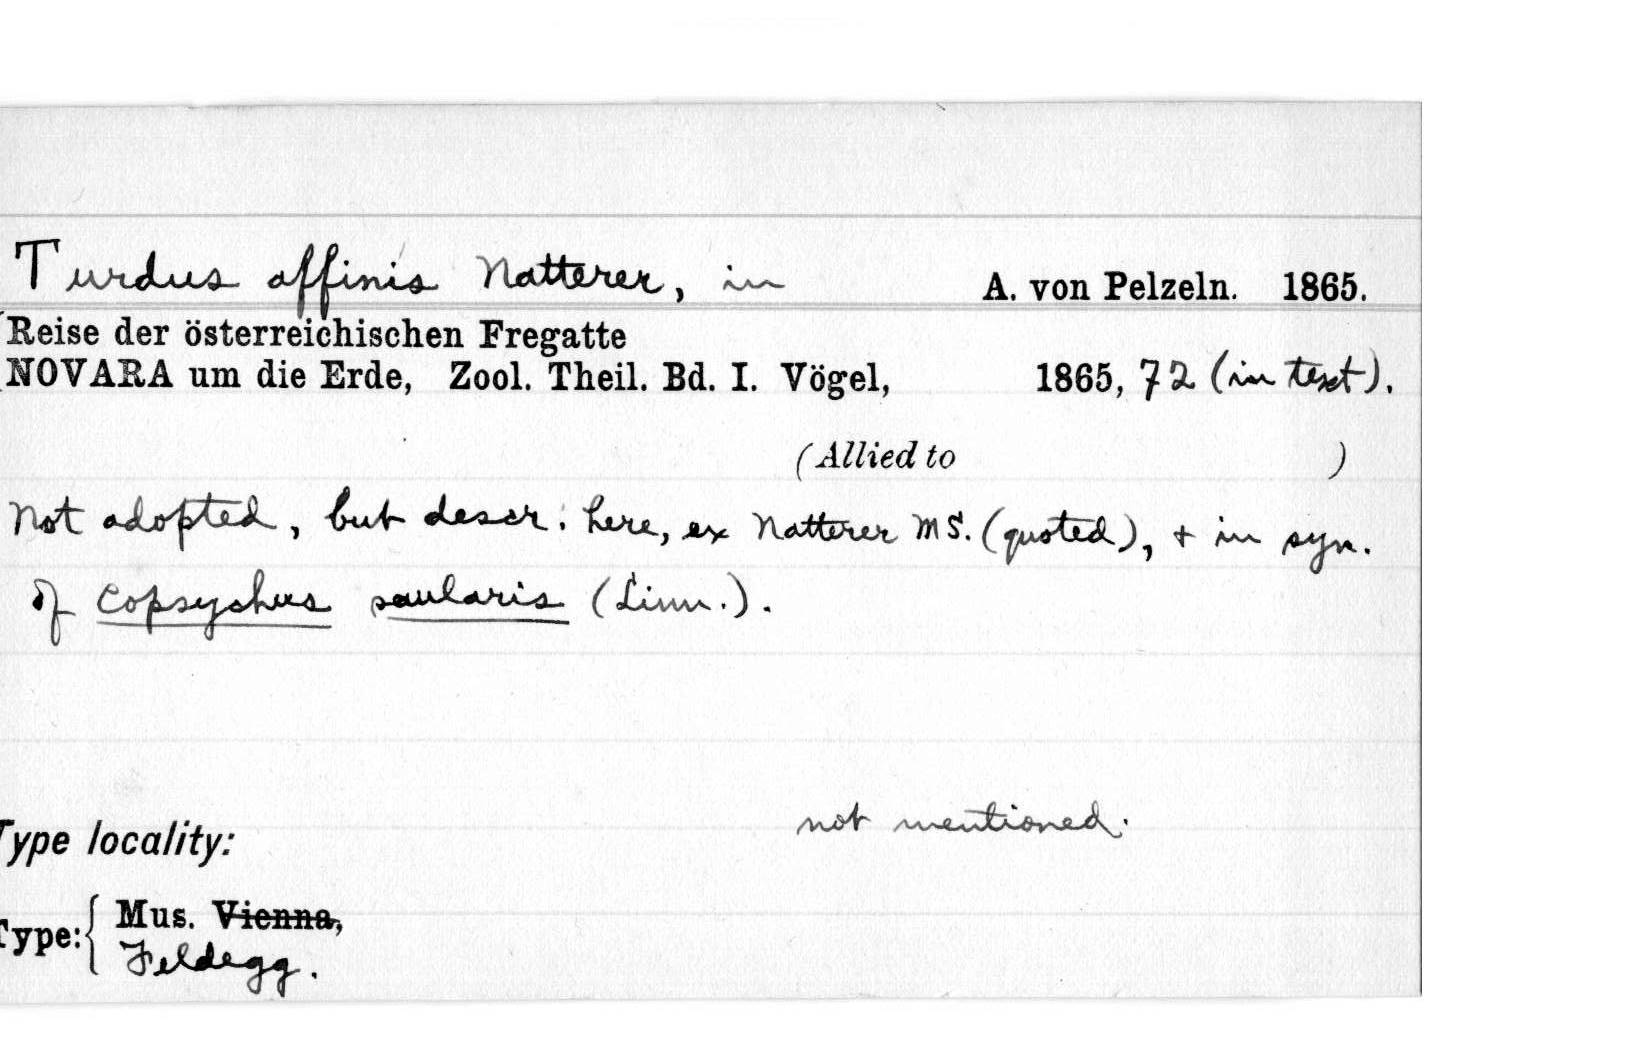 Turdus affinis Natterer, in A. von Pelzeln. 1865.
Reise der österreichischen Fregatte
NOVARA um die Erde, Zool. Theil. Bd. I. Vögel, 1865, 72 (in text).
(Allied to )
Not adopted, but descr. here, ex Natterer MS. (quoted), + in syn.
of Copsychus saularis (Linn.).
not mentioned.
Type locality:
Type: { Mus. Vienna,
Feldegg.